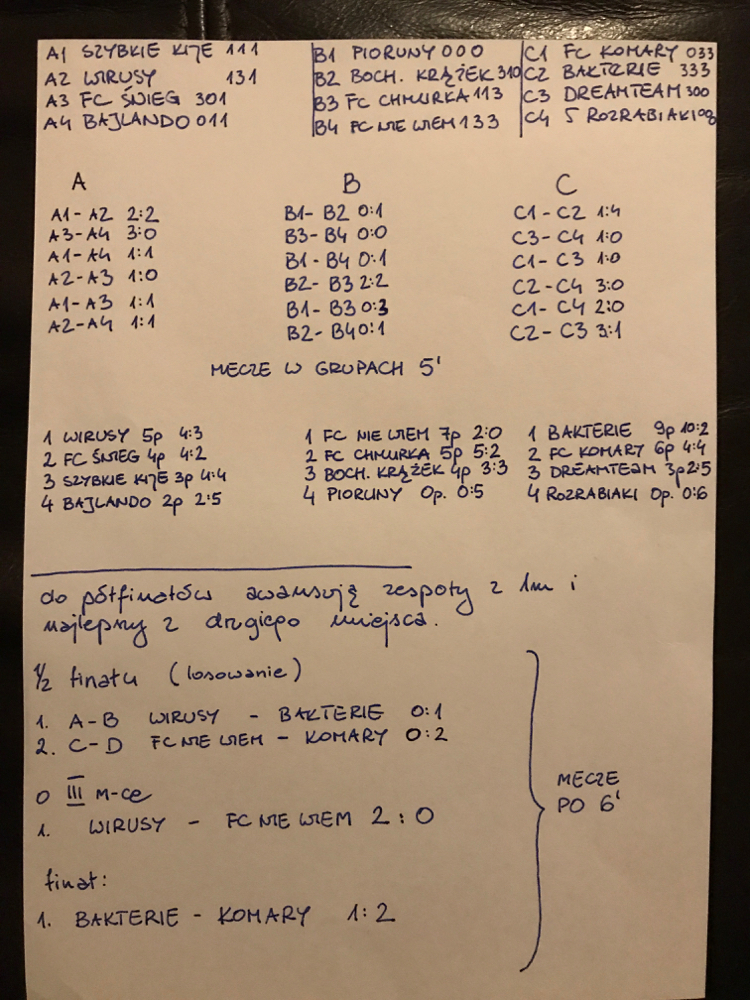 A1 SZYBKIE KIJE 111
A2 WIRUSY 131
A3 FC ŚNIEG 301
A4 BAJLANDO 011
B1 PIORUNY 000
B2 BOCH. KRĄŻEK 310
B3 FC CHMURKA 113
B4 FC NIE WIEM 133
C1 FC KOMARY 033
C2 BAKTERIE 333
C3 DREAMTEAM 300
C4 5 ROZRABIAKI
A
A1 - A2 2:2
A3 - A4 3:0
A1 - A4 1:1
A2 - A3 1:0
A1 - A3 1:1
A2 - A4 1:1
B
B1 - B2 0:1
B3 - B4 0:0
B1 - B4 0:1
B2 - B3 2:2
B1 - B3 0:3
B2 - B4 0:1
C
C1 - C2 1:4
C3 - C4 1:0
C1 - C3 1:0
C2 - C4 3:0
C1 - C4 2:0
C2 - C3 3:1
MECZE W GRUPACH 5'
1 WIRUSY 5p 4:3
2 FC ŚNIEG 4p 4:2
3 SZYBKIE KIJE 3p 4:4
4 BAJLANDO 2p 2:5
1 FC NIE WIEM 7p 2:0
2 FC CHMURKA 5p 5:2
3 BOCH. KRĄŻEK 4p 3:3
4 PIORUNY 0p. 0:5
1 BAKTERIE 9p 10:2
2 FC KOMARY 6p 4:4
3 DREAMTEAM 3p 2:5
4 ROZRABIAKI 0p. 0:6
do półfinałów awansują zespoły z 1m i
najlepszy z drugiego miejsca.
1/2 finału (losowanie)
1. A-B WIRUSY - BAKTERIE 0:1
2. C-D FC NIE WIEM - KOMARY 0:2
O III M-ce
1. WIRUSY - FC NIE WIEM 2:0
finał:
1. BAKTERIE - KOMARY 1:2
MECZE
PO 6'